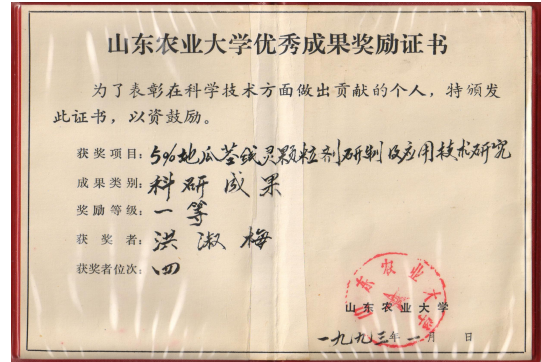 山东农业大学优秀成果奖励证书
为了表彰在科学技术方面做出贡献的个人，特颁发
此证书，以资鼓励。
获奖项目：5%地瓜茎线灵颗粒剂研制及应用技术研究
成果类别：科研成果
奖励等级：一等
获奖者：洪淑梅
获奖者位次：四
山东农业大学
山东农业大学
一九九三年一月 日